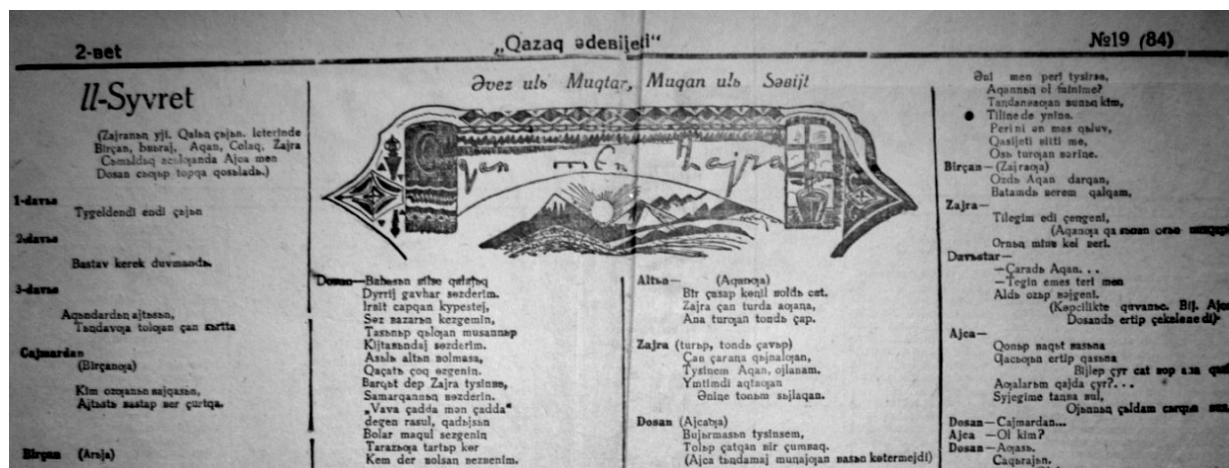 2-вet
„Qazaq әdeвijeti“
№19 (84)
II-Syvret
(Zajranьn yji. Qalьꞑ çьjьn. Icterinde
Birçan, Aqan, Colaq, Zajra
Ajca men
Dosan cьƣьp topqa qosьladь.)
1-davьs
Tygeldendi endi çьjьn
2-davьs
Bastav kerek duvmandь.
3-davьs
Aqьndardьꞑ ajtьsьn,
Taꞑdavƣa tolƣan çan
Cajmardan
(Birçanƣa)
Kim ozƣanьn вajqasьn,
Ajtьstь вastap вer çurtqa.
Birçan (Arьja)
Әvez ulь Muqtar, Muqan ulь Sәвijt
Aqan — Zajra
Dosan—
Dyrrij gavhar sөzderim.
Irsit capqan kypestej,
Sөz вazarьn kezgemin,
Tasьnьp qalƣan musannap
Kijtaвьndaj sөzderim.
Asьlь altьn вolmasa,
Qaçatь çoq өzgeniꞑ.
Barqьt dep Zajra tysinвe,
Samarqannьꞑ вөzderin.
„Vava çadda mәn çadda“
degen rasul, qadьjsьn
Bolar maqul sezgeniꞑ
Tarazьƣa tartьp kөr
Kem der вolsaꞑ вezвenim.
Altьn— (Aqanƣa)
Bir çasap keꞑil вoldь cat.
Zajra çan turda aƣaꞑa,
Ana turƣan tondь çap.
Zajra (turьp, tondь çavьp)
Çan çaraꞑa qьjnalƣan,
Tysinem Aqan, ojlanam.
Ymtimdi aqtaƣan
Әnine tonьm sьjlaƣan.
Dosan (Ajcaƣa)
Bujьrmasьn tysinsem,
Tolьp çatqan вir çumвaq.
(Ajca tьꞑdamaj muꞑajƣan вasьn kөtermejdi)
Әni men peri tysirse,
Aqannьꞑ ol
Taꞑdanвaƣan вunьꞑ kim,
Tiline de ynine.
Perini әn mas qьluv,
Qasijeti вitti me,
Osь turƣan вәrine.
Birçan—(Zajraƣa)
Ozdь Aqan darqan,
Batamdь вerem qalqam,
Zajra—
Tilegim edi çeꞑgeni,
(Aqanƣa
Ornьꞑ mine kel вeri.
Davьstar—
—Çaradь Aqan. . .
—Tegin emes teri men
Aldь ozьp вәjgeni.
(Kөpcilikte qavanьc. Bij. Ajca
Dosandь ertip çekelenedi)
Ajca—
Qonьp вaqьt вasьna
Qacƣьn ertip qasьna
Bijlep çyr cat вop
Aƣalarьm qajda çyr?. . .
Syjegime taꞑвa вul,
Ojьnnьꞑ çaldam
Dosan—Cajmardan...
Ajca —Ol kim?
Dosan—Aƣasь.
Caqьrajьn.